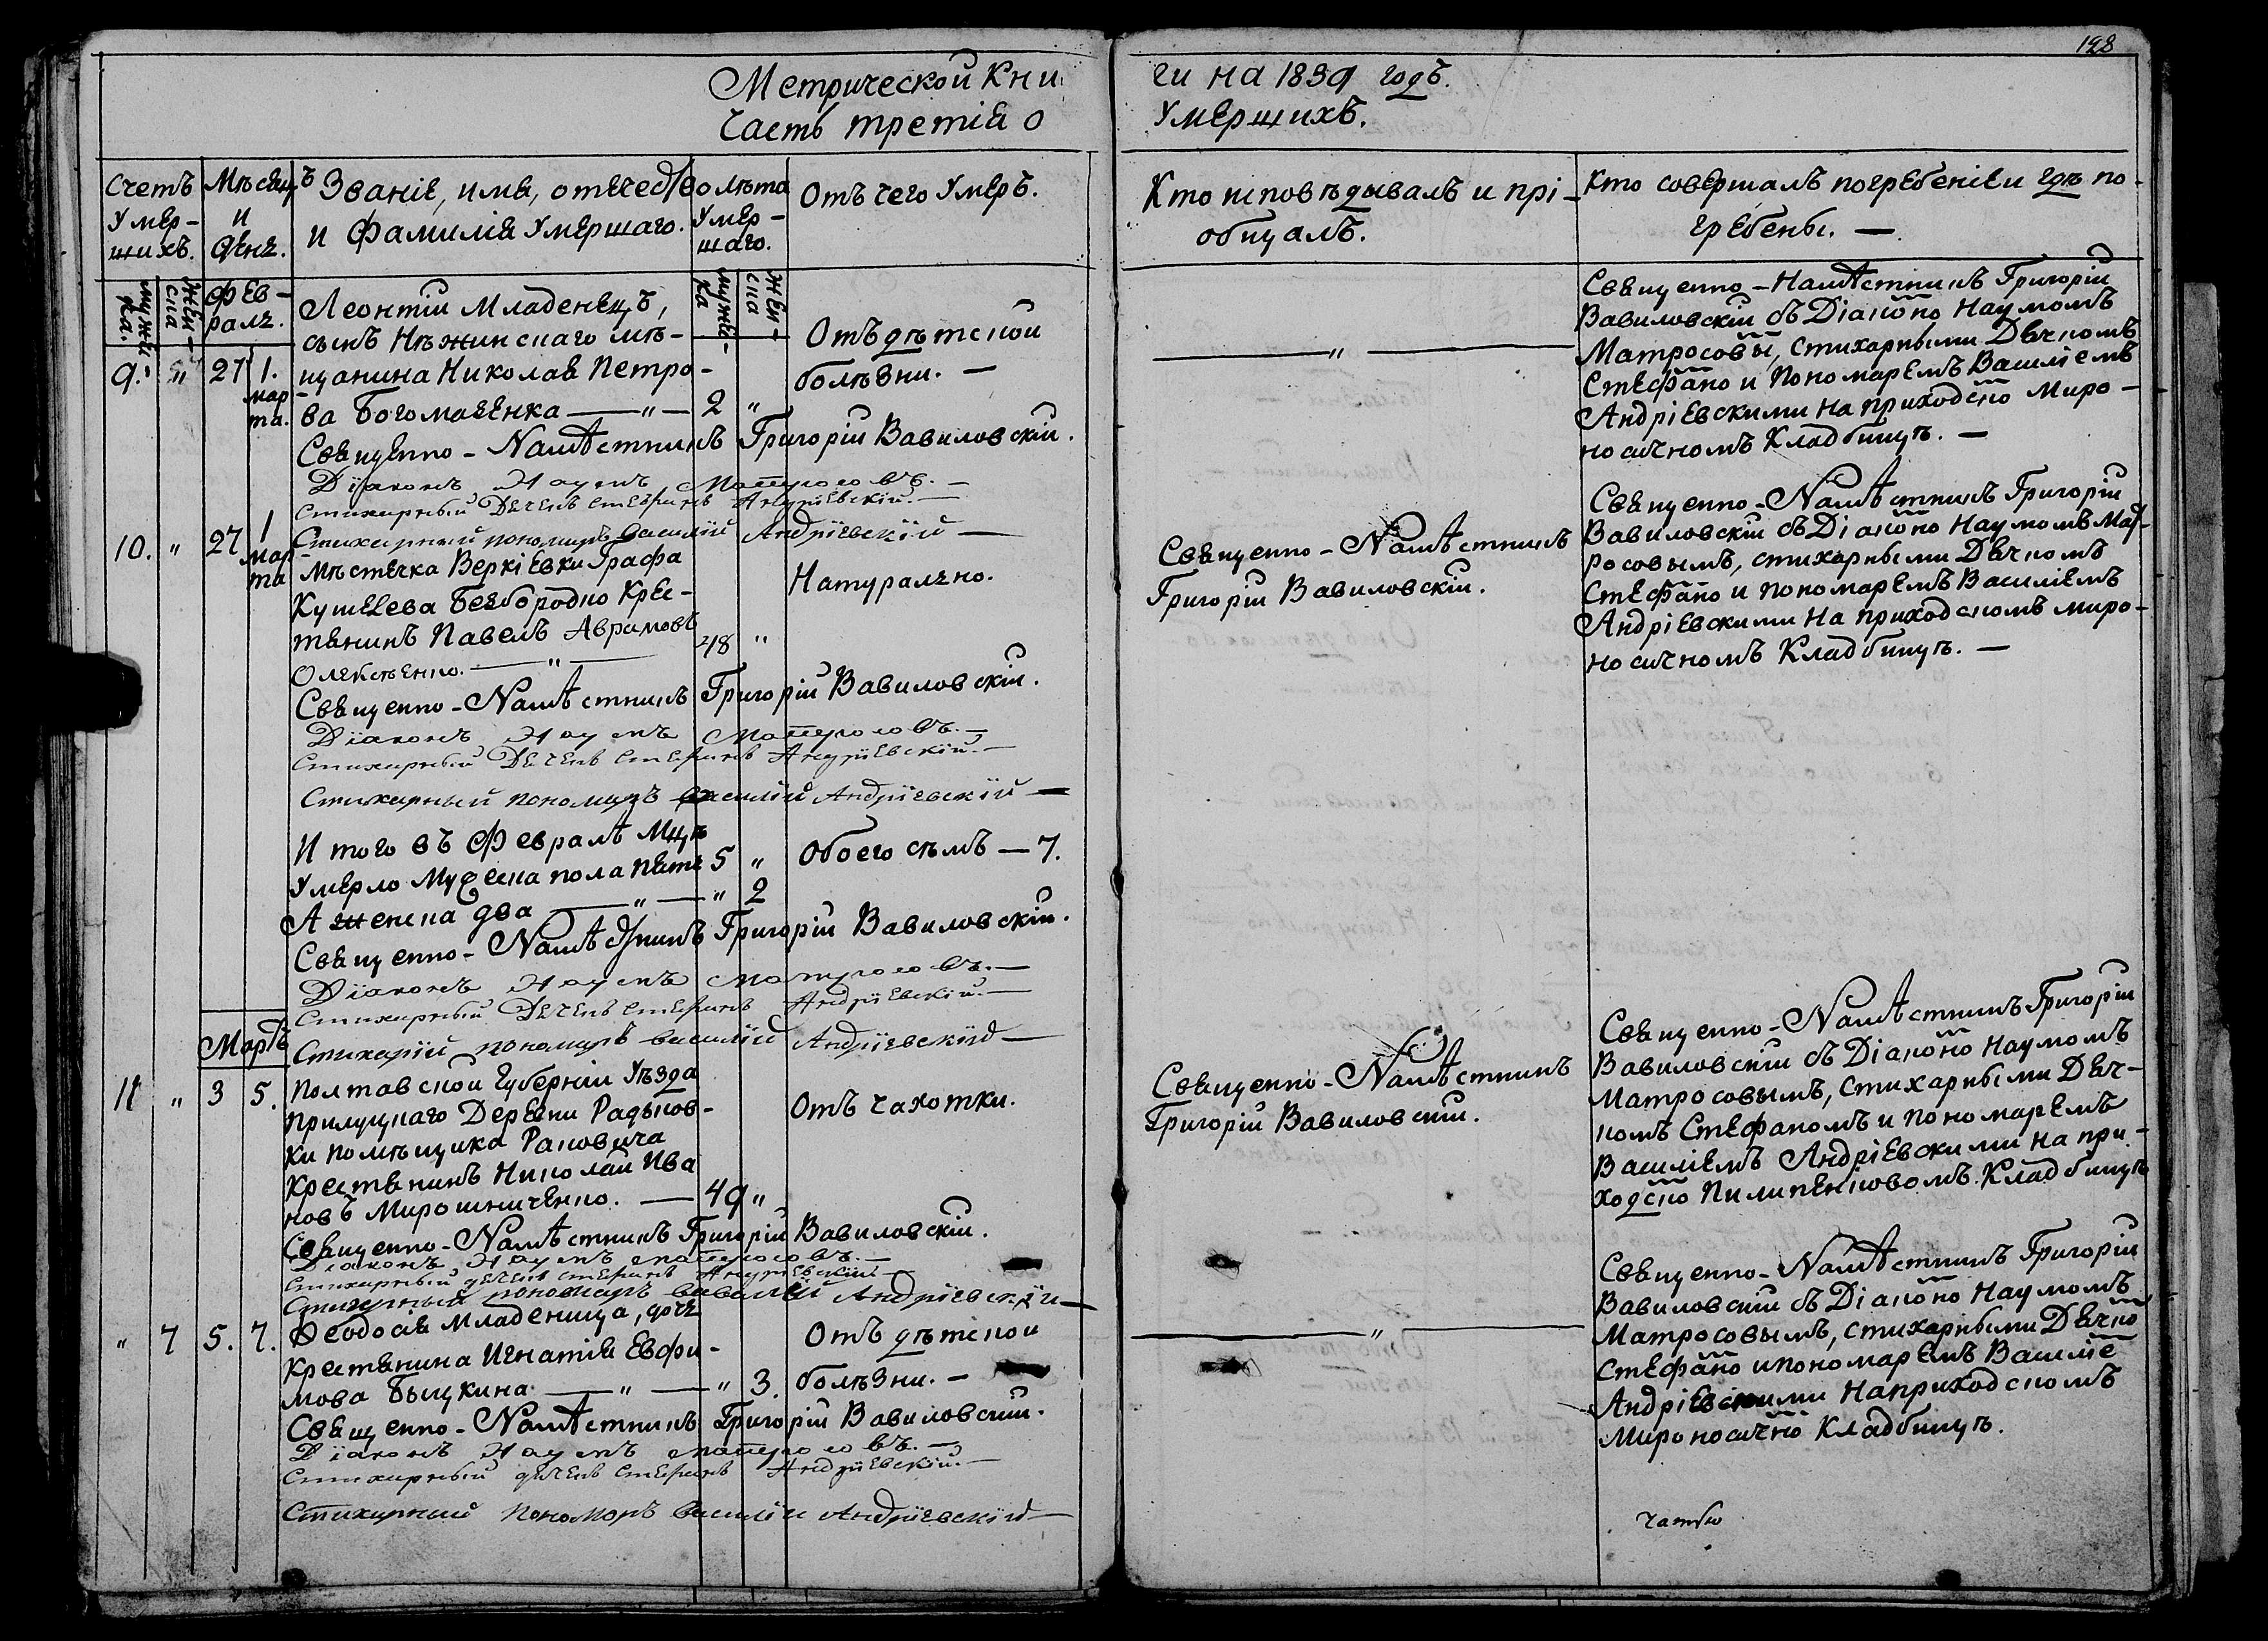 128
Метрической Кни
ги на 1839 годъ.
Часть третія о
Умершихъ.
Счетъ Умер-
шихъ.
Мѣсяцъ
и
день.
Званіе, имя, отечество
и Фамилія Умершаго.
лѣта
Умер-
шаго.
Отъ чего Умеръ.
Кто исповѣдывалъ и прі-
общалъ.
Кто совершалъ погребеніе и гдѣ по-
гребены. —
мужес-
ка.
жен-
ска
Фев-
раль.
мужес-
ка
жен-
ска
9. " 27 1.
мар-
та.
Леонтій Младенецъ,
сынъ Нѣжинскаго мѣ-
щанина Николая Петро-
ва Богомаенка — " — 2 "
Отъ дѣтской
болѣзни. —
— " —
Священно-Намѣстникъ Григорій
Вавиловскій съ Діакономъ Наумомъ
Матросовымъ, стихарными Дячкомъ
Стефаномъ и пономаремъ Василіемъ
Андріевскими на приходскомъ Миро-
носичномъ Кладбищѣ. —
Священно-Намѣстникъ Григорій Вавиловскій.
Діаконъ Наумъ Матросовъ. —
Стихарный Дячекъ Стефанъ Андріевскій. —
Стихарный пономарь Василій Андріевскій —
10. " 27 1
мар-
та
Мѣстечка Веркіевки Графа
Кушелева Безбородко Крес-
тянинъ Павелъ Аврамовъ
Олексѣенко. — " — 48 "
Натурально.
Священно-Намѣстникъ
Григорій Вавиловскій.
Священно-Намѣстникъ Григорій
Вавиловскій съ Діакономъ Наумомъ Мат-
росовымъ, стихарными Дячкомъ
Стефаномъ и пономаремъ Василіемъ
Андріевскими на приходскомъ миро-
носичномъ Кладбищѣ. —
Священно-Намѣстникъ Григорій Вавиловскій.
Діаконъ Наумъ Матросовъ. —
Стихарный Дячекъ Стефанъ Андріевскій. —
Стихарный пономарь Василій Андріевскій —
И того въ Февралѣ Мцѣ
Умерло Мужеска пола пять 5 " Обоего сѣмъ — 7.
А женска два — " — " 2
Священно-Намѣстникъ Григорій Вавиловскій.
Діаконъ Наумъ Матросовъ. —
Стихарный Дячекъ Стефанъ Андріевскій. —
Стихарій пономарь Василій Андріевскій —
Мартъ
11 " 3 5.
Полтавской Губерніи Уѣзда
Прилуцкаго Деревни Радьков-
ки помѣщика Раковича
Крестянинъ Николай Ива
новъ Мирошниченко. — 49 "
Отъ чахотки.
Священно-Намѣстникъ
Григорій Вавиловскій.
Священно-Намѣстникъ Григорій
Вавиловскій съ Діакономъ Наумомъ
Матросовымъ, Стихарными Дяч-
комъ Стефаномъ и пономаремъ
Василіемъ Андріевскими на при-
ходско Пилипенковомъ Кладбищѣ
Священно-Намѣстникъ Григорій Вавиловскій.
Діаконъ Наумъ Матросовъ. —
Стихарный дячекъ Стефанъ Андріевскій —
Стихарный пономарь Василій Андріевскій —
" 7 5. 7.
Ѳеодосія младеница, дочь
крестянина Игнатія Евфи-
мова Быцкина — " — " 3.
Отъ дѣтской
болѣзни. —
— " —
Священно-Намѣстникъ Григорій
Вавиловскій съ Діакономъ Наумомъ
Матросовымъ, стихарными Дячко
Стефано и пономаремъ Василіе
Андріевскими на приходскомъ
Мироносично Кладбищѣ.
Священно-Намѣстникъ Григорій Вавиловскій.
Діаконъ Наумъ Матросовъ. —
Стихарный дячекъ Стефанъ Андріевскій. —
Стихарный Пономарь Василій Андріевскій —